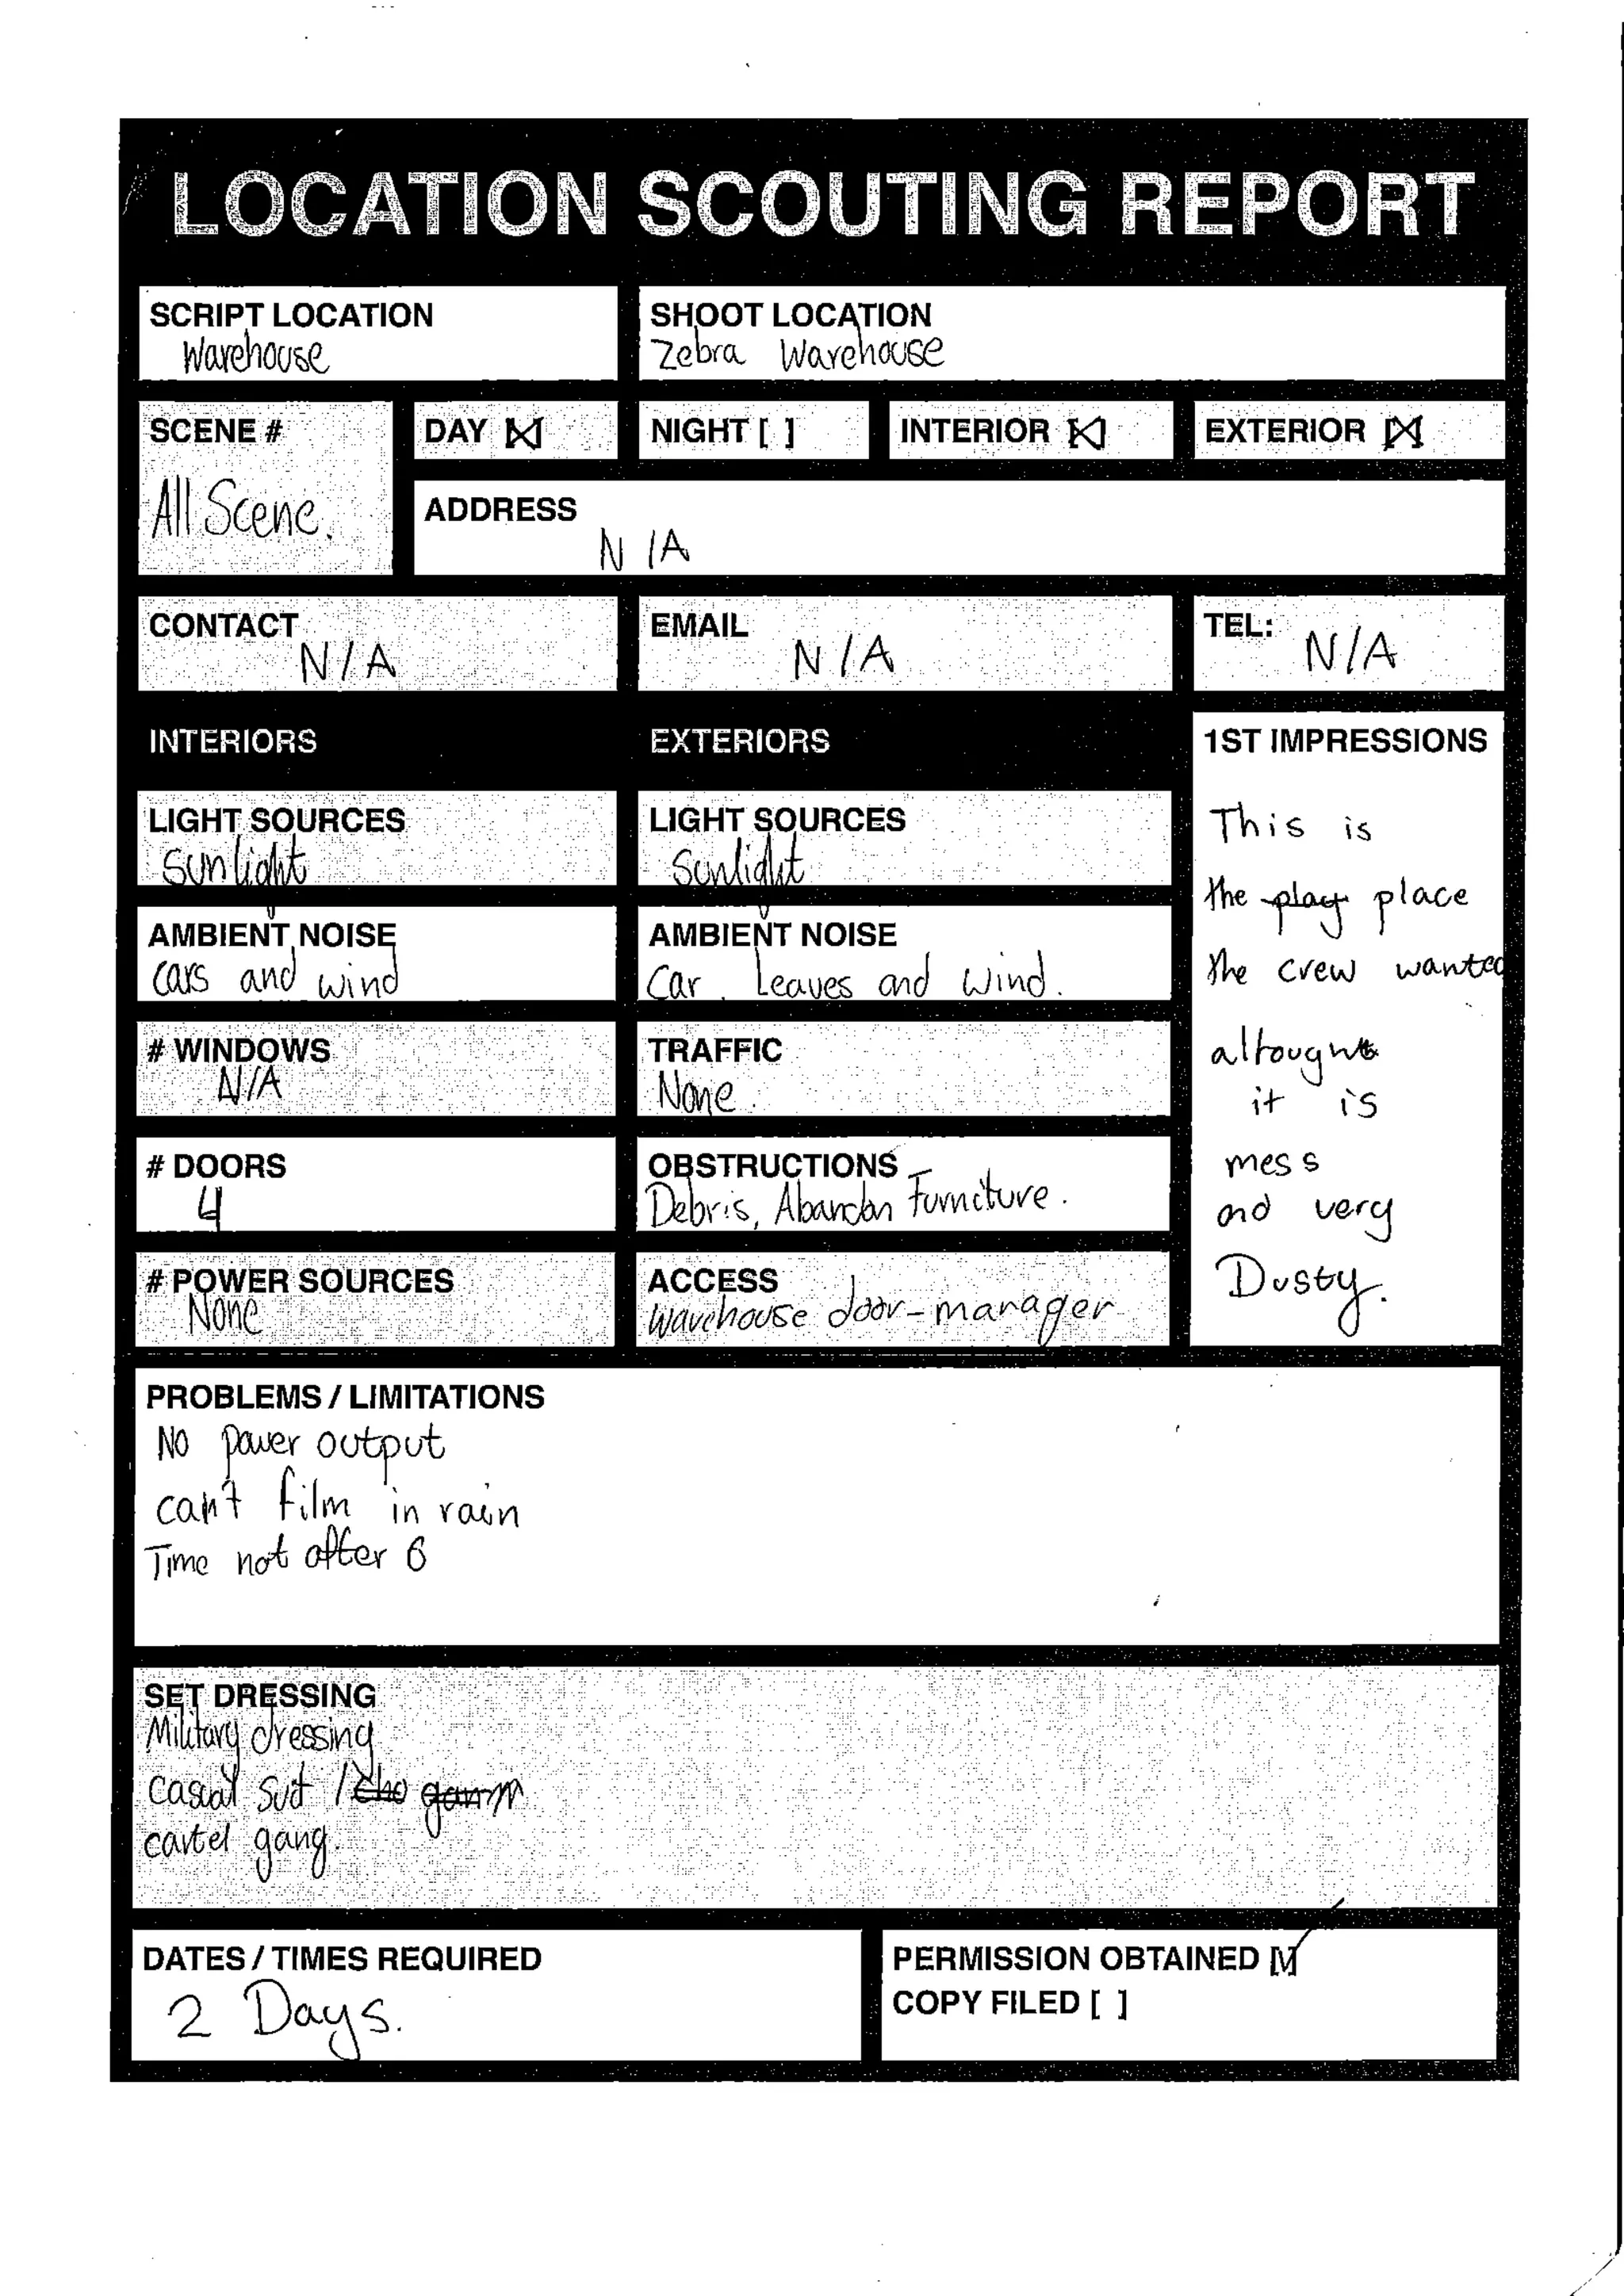 LOCATION SCOUTING REPORT
SCRIPT LOCATION
Warehouse
SHOOT LOCATION
Zebra Warehouse
SCENE #
All Scene.
DAY [X]
NIGHT [ ]
INTERIOR [X]
EXTERIOR [X]
ADDRESS
N/A
CONTACT
N/A
EMAIL
N/A
TEL:
N/A
INTERIORS
EXTERIORS
1ST IMPRESSIONS
This is
the play place
the crew wanted
altought
it is
mess
and very
Dusty.
LIGHT SOURCES
Sunlight
LIGHT SOURCES
Sunlight
AMBIENT NOISE
Cars and wind
AMBIENT NOISE
Car. Leaves and Wind.
# WINDOWS
N/A
TRAFFIC
None.
# DOORS
4
OBSTRUCTIONS
Debris, Abandon Furniture.
# POWER SOURCES
None
ACCESS
Warehouse door-manager
PROBLEMS / LIMITATIONS
No power output
can't film in rain
Time not after 6
SET DRESSING
Military dressing
casual suit /
cartel gang.
DATES / TIMES REQUIRED
2 Days.
PERMISSION OBTAINED [✓]
COPY FILED [ ]